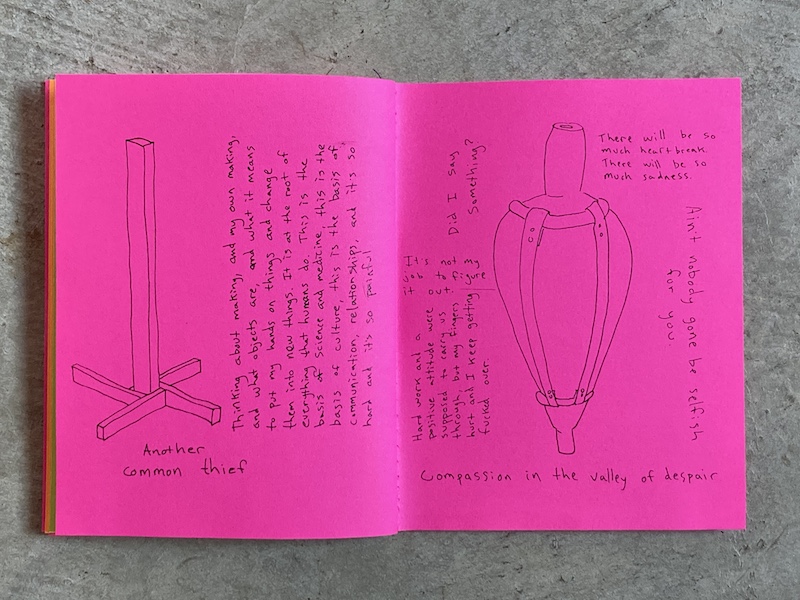 Thinking about making, and my own making,
and what objects are, and what it means
to put my hands on things and change
them into new things. It is at the root of
everything that humans do. This is the
basis of science and medicine, this is the
basis of culture, this is the basis of
communication, relationships, and it's so
hard and it's so painful
Another
common thief
Did I say
Something?
There will be so
much heartbreak.
There will be so
much sadness.
Ain't nobody gone be selfish
for you.
It's not my
job to figure
it out.
Hard work and a
positive attitude were
supposed to carry us
through, but my fingers
hurt and I keep getting
fucked over.
Compassion in the valley of despair